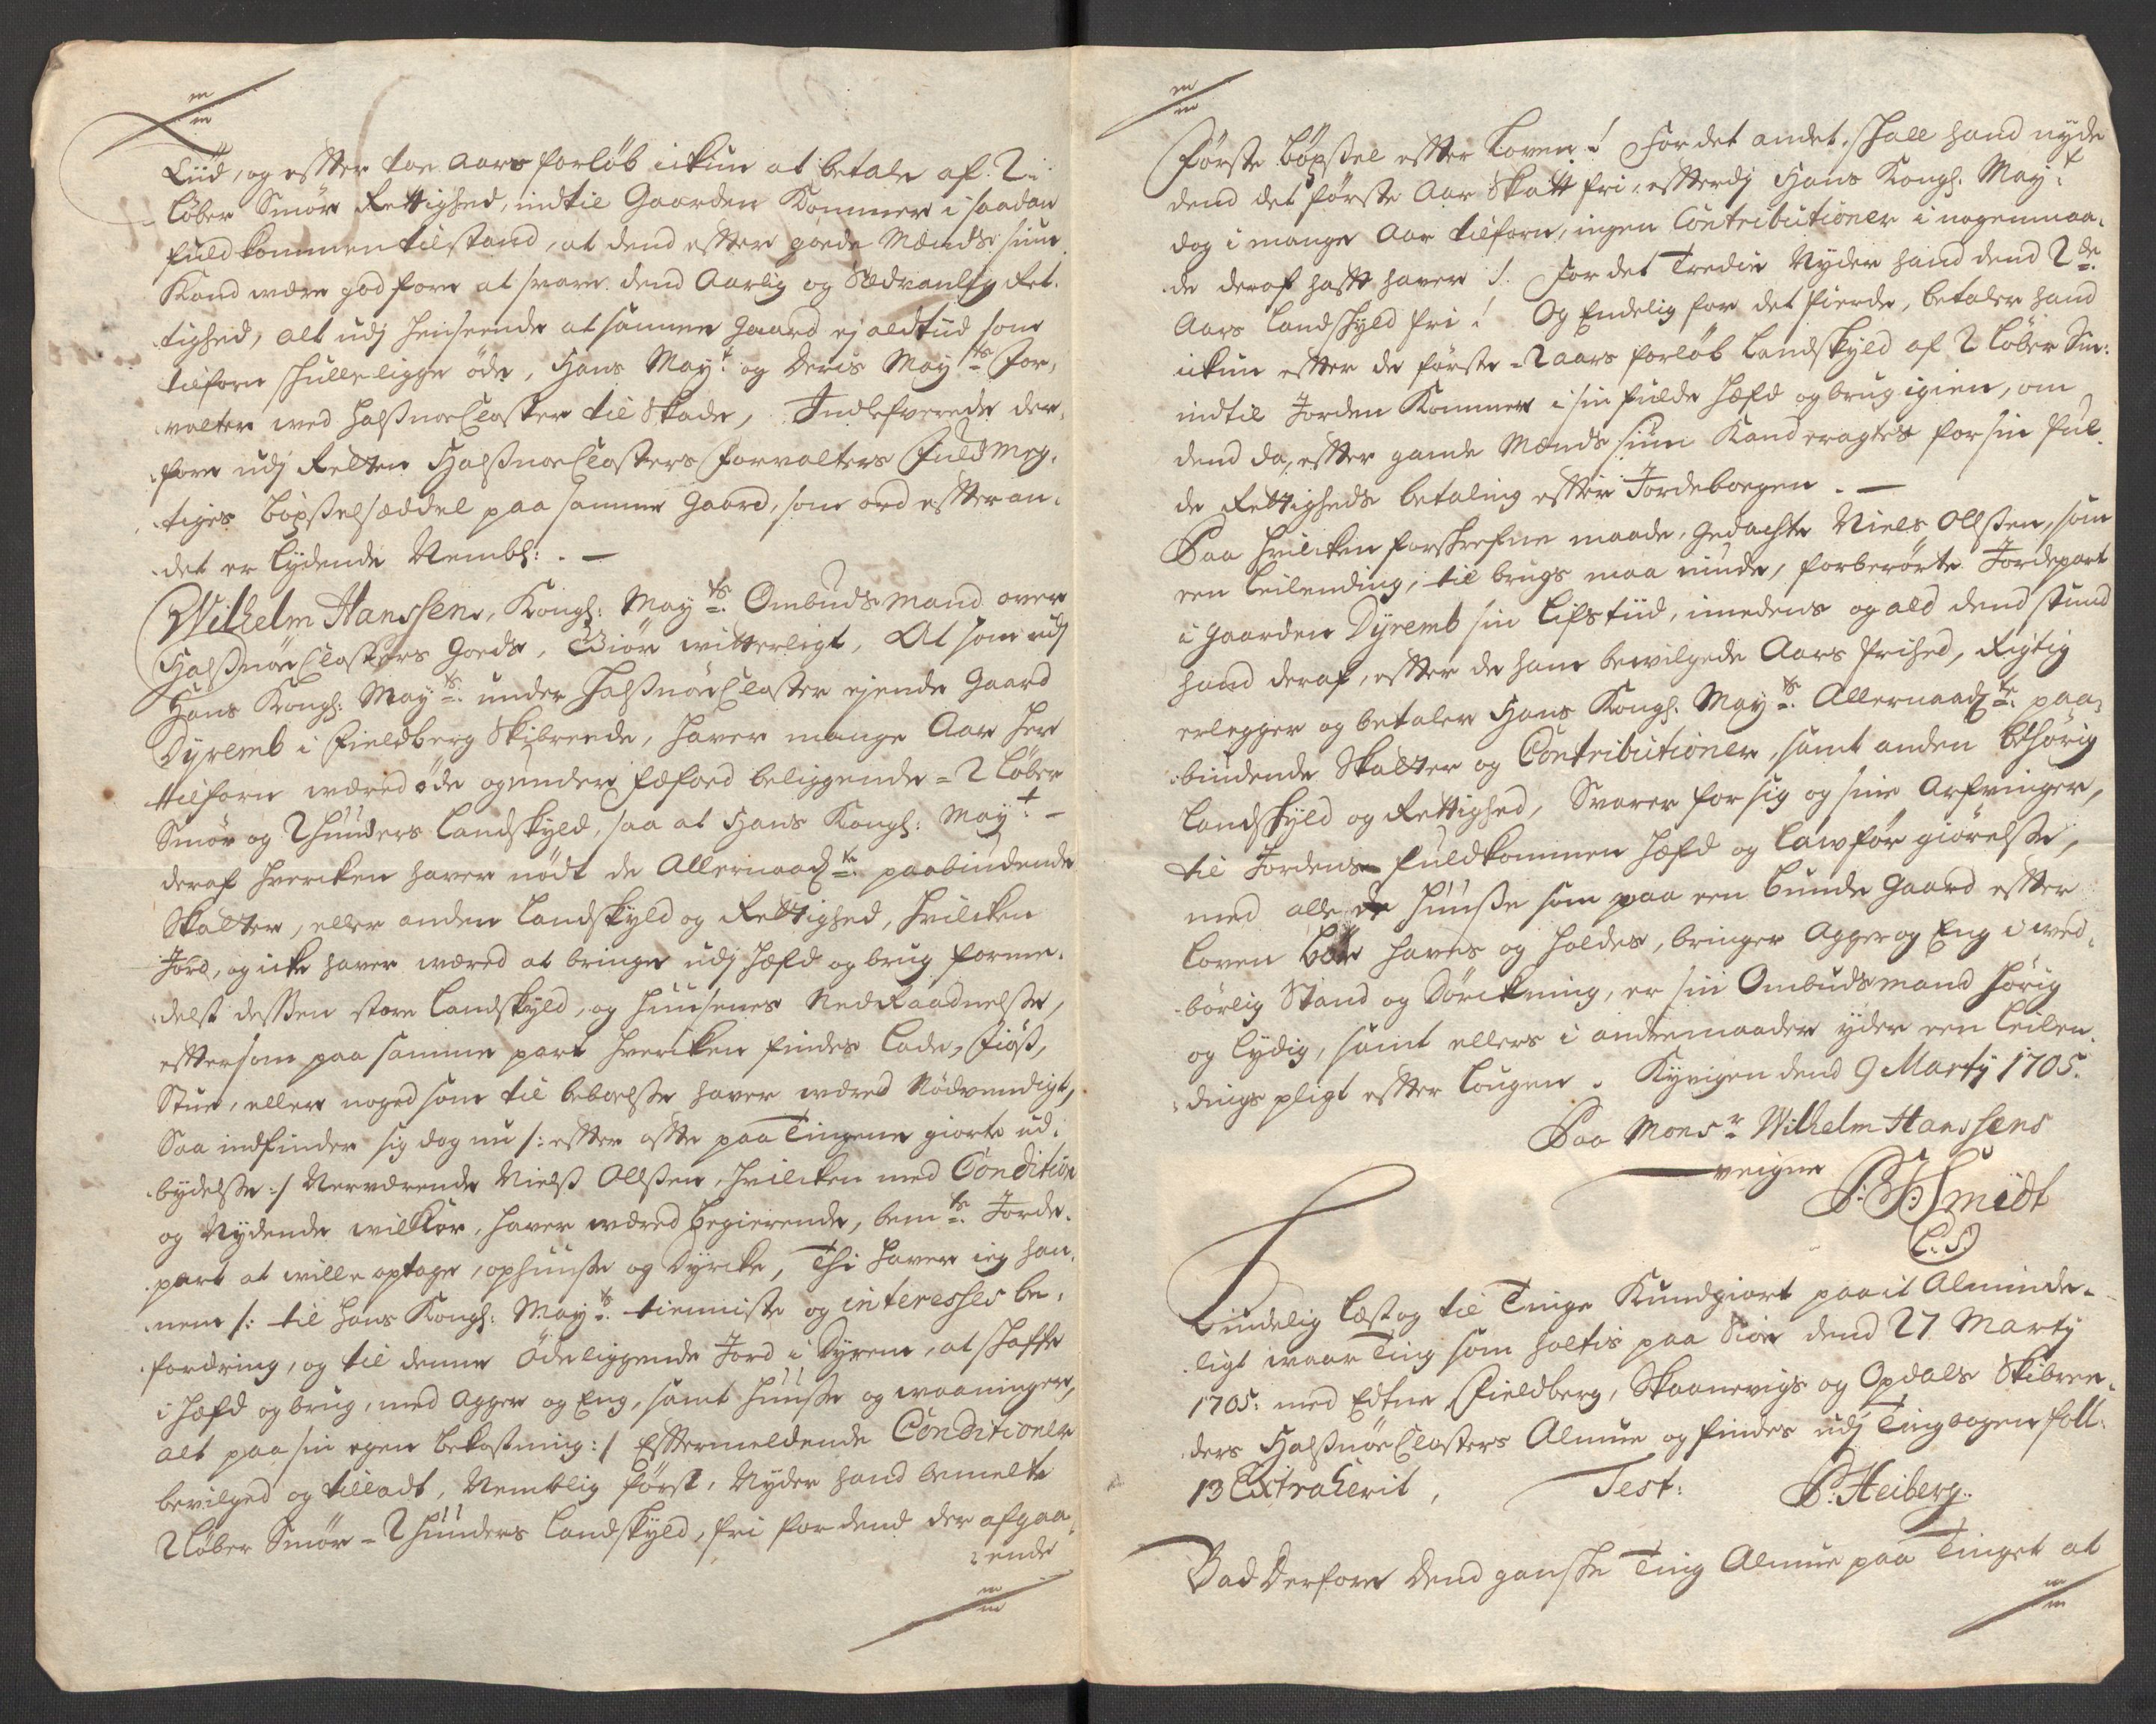 Tiid, og efter toe Aars forløb ickun at betale af 2
løber Smør Rettighed, indtil Gaarden Kommer i saadan
fuldkommen tilstand, at dend efter goede Mænds siun
Kand være god for at svare dend Aarlig og Sædvanlig Ret¬
tighed, alt udj henseende at samme Gaard ej altiid som
tilforn skulle ligge øde, Hans Mayt: og Deris Mayts For¬
valter ved Halsnøe Closter til Skade, Indlefverede der¬
for udj Retten Halsnøe Closters Forvalters Fuldmeg¬
tiges bøxselsæddel paa samme Gaard, som ord efter an¬
det er lydende Nembl: . —
Wilhelm Hanssen, Kongl: Mayts Ombudsmand over
Halsnøe Closters Goeds, Giør witterligt, At som udj
Hans Kongl: Mayts under Halsnøe Closter ejende Gaard
Dyremb i Fieldberg Skibrede, haver mange Aar her
tilforn været øde og under Fæfoed beliggende = 2 Løber
Smør og 2 huuders Landskyld, saa at Hans Kongl: Mayt: —
deraf hvercken haver nødt de Allernaadte paabindende
Skatter, eller anden Landskyld og Rettighed, hvilcken
Jord, og icke haver været at bringe udj hæfd og brug forme¬
delst dessen store Landskyld, og huusenes Nedraadnelse,
eftersom paa samme part hvercken findes Lade, Fiøs,
Stue, eller noged som til beboelse haver været Nødvendigt,
Saa indfinder sig dog nu /: efter ofte paa Tingene giorte ud¬
bydelse :/ Nerværende Niels Olssen, hvilcken med Condition
og Nydende wilkor, haver været begierende, bemte Jorde¬
part at wille optage, ophuuse og dyrcke, Thi haver ieg han¬
nem /: til Hans Kongl: Mayts tienniste og interesses be¬
fordring, og til denne Ødeliggende Jord i Dyrem, at skaffe
i hæfd og brug, med Agger og Eng, samt huuse og waaninger,
alt paa sin egen bekostning :/ Eftermeldende Conditioner
bevilged og tilladt, Nemblig først, Nyder hand bemelte
2 løber Smør = 2 huuders Landskyld, fri for dend der afgaa¬
ende
Første bøxsel efter Loven ! For det andet, skall hand nyde
dend det første Aar Skatt fri, efterdj Hans Kongl: Mayt:
dog i mange Aar tilforn, ingen Contributioner i nogenmaa¬
de deraf haft haver !. For det Tredie Nyder hand dend 2de
Aars Landskyld fri ! Og Endelig for det fierde, betaler hand
ickun efter de første = 2 aars forløb Landskyld af 2 løber Sm:
indtil Jorden Kommer i sin fulde hæfd og brug igien, om
dend da, efter gaude Mænds siun Kand eragtes for sin ful¬
de Rettigheds betaling efter Jordebogen . —
Paa hvilcken forskrefne maade, gedachte Niels Olssen, som
een Leilending, til brugs maa niude, forberørte Jordepart
i Gaarden Dyremb sin Lifstiid, imedens og ald dend stund
hand deraf, efter de ham bewilgede Aars frihed, Rigtig
erlegger og betaler Hans Kongl: Mayts Allernaadte paa¬
bindende Skatter og Contributioner, samt anden behørig
Landskyld og Rettighed, Svarer for sig og sine Arfvinger,
til Jordens fuldkommen hæfd og lawfør giørelse,
med alle de huuse som paa een bunde Gaard efter
Loven bør haves og holdes, bringer Agger og Eng i wed¬
børlig Stand og Dørckning, er sin Ombudsmand hørig
og Lydig, samt ellers i andremaader yder een Leilen¬
dings pligt efter Lougen. Kyvigen dend 9 Martij 1705.
Paa Monsr Wilhelm Hanssens
veigne
Smidt
L: S:
Liudelig Læst og til Tinge Kundgiort paa it Alminde¬
ligt waar Ting som holtis paa Siøe dend 27 Martij
1705: med Edtne, Fieldberg, Skaanevigs og Opdals Skibree¬
ders Halsnøe Closters Almue og findes udj Tingbogen foll:
13 Extraherit, Test: P: Heiberg.
Bad derfore dend ganske Ting Almue paa Tinget at